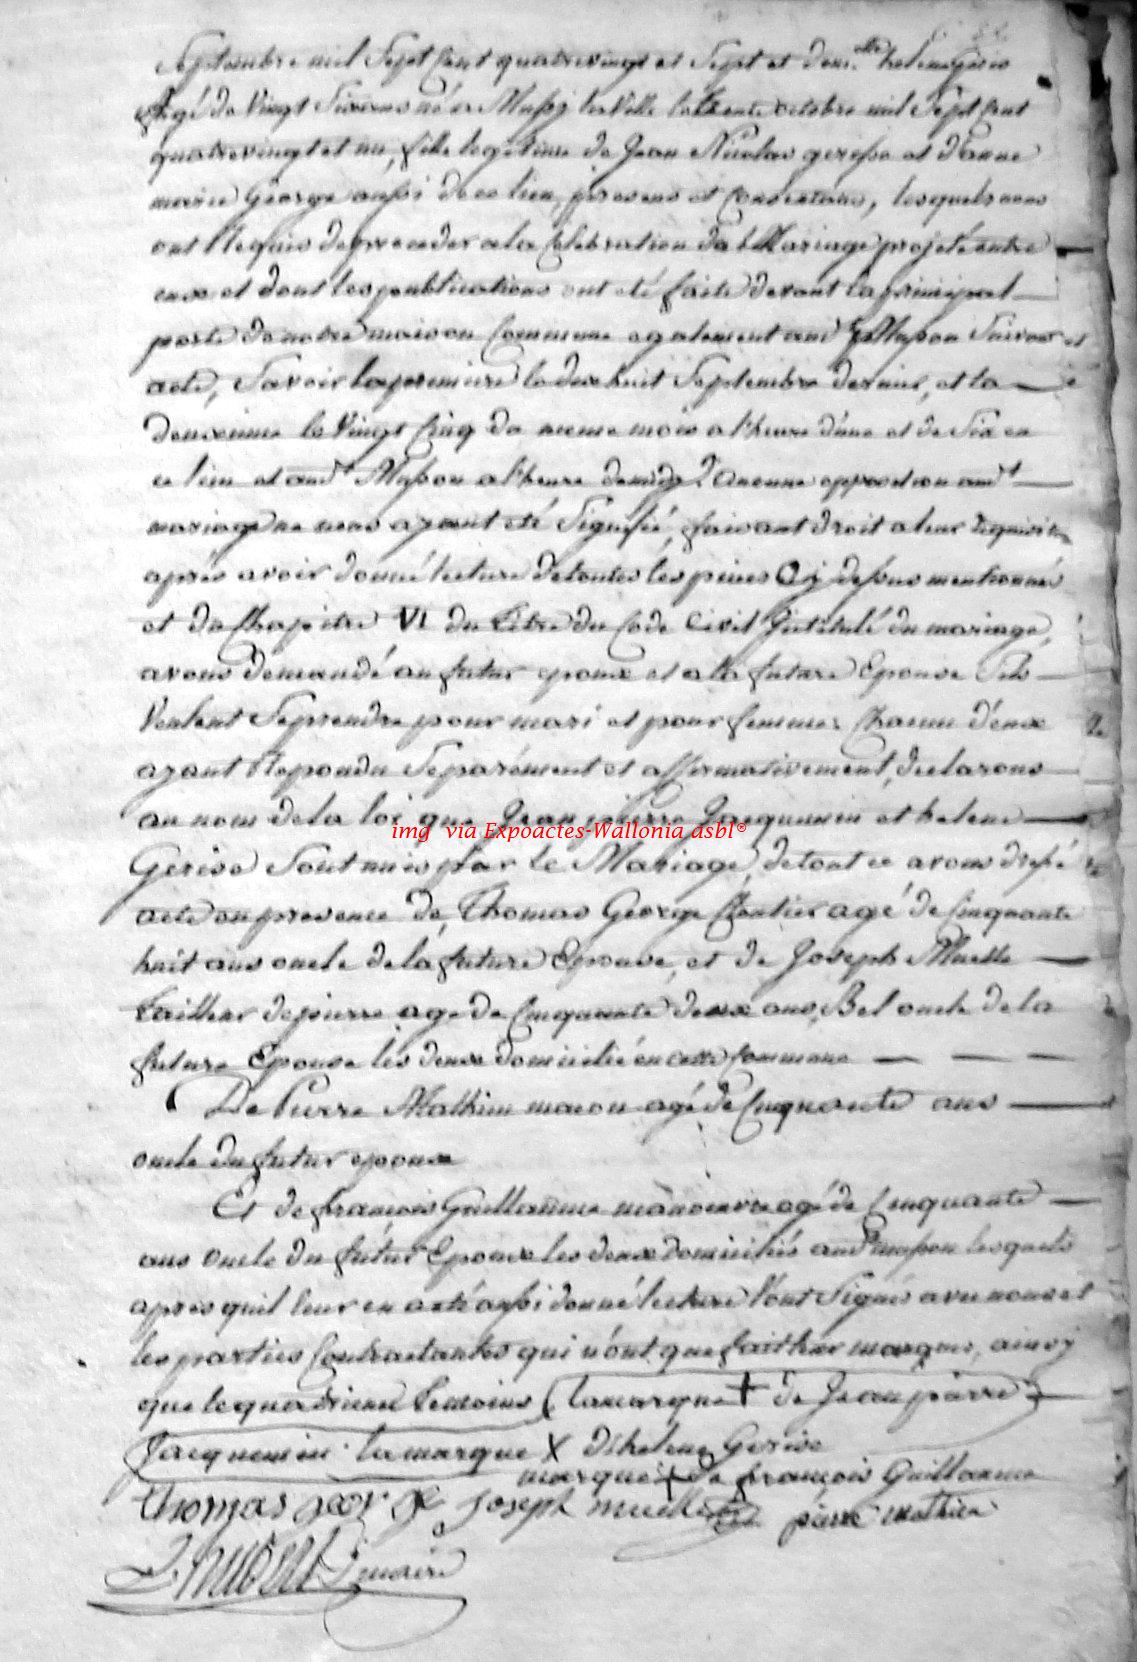 Septembre mil Sept Cent quatrevingt et Sept et dem.lle helene gerise
agé de Vingt Six ans né a Mussy la Ville le trente octobre mil Sept Cent
quatrevingt et un, fille legitime de Jean Nicolas gerise et d'anne
marie George aussi de ce lieu, presens et Consentans, lesquels nous
ont Requis de proceder a la Celebration du Mariage projeté entre
eux et dont les publications ont eté faite devant la principal
porte de notre maison Commune egalement aud. Musson Suivant
acte, Savoir la premiere le dix huit Septembre dernier, et la
deuxieme le Vingt Cinq du meme mois a l'heure d'une et de Six en
ce lieu et aud.t Musson a l'heure de midy. aucune opposition aud.t
mariage ne nous ayant eté Signifié, faisant droit a leur requisition
aprés avoir donné lecture de toutes les pieces Cy dessus mentionnés
et du Chapitre VI du titre du Code Civil Intitulé du mariage,
avons demandé au futur epoux et a la future Epouse S'ils
Veulent Se prendre pour mari et pour femme: Chacun d'eux
ayant Repondu Separément et affirmativement, declarons
au nom de la loi que Jean pierre Jacquemin et helene
img via Expoactes-Wallonia asbl®
Gerise Sont unis par le Mariage, de tout ce avons dressé
acte en presence de Thomas George Rentier agé de Cinquante
huit ans oncle de la future Epouse, et de Joseph Muelle
tailleur de pierre agé de Cinquante deux ans, Bel oncle de la
future Epouse les deux domicilié en cette Commune
De Pierre Mathieu macon agé de Cinquante ans
oncle du futur epoux
Et de françois Guillaume manoeuvre agé de Cinquante
ans oncle du futur Epoux les deux domiciliés aud.t musson lesquels
apres quil leur en a eté aussi donné lecture l'ont Signés avec nous et
les parties Contractantes qui n'ont que fait leur marque, ainsy
que le quatrieme temoins la marque + de Jean pierre
Jacquemin. la marque X d'helene Gerise
marque + de françois Guillaume
thomas george joseph muelle pierre mathieu
maire